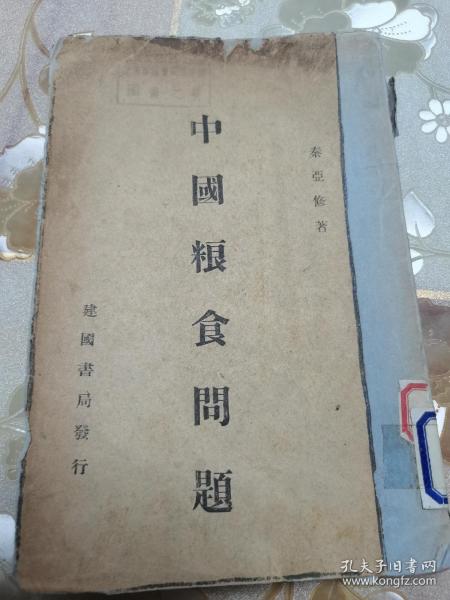 秦亞修著
中國粮食問題
建國書局發行
孔夫子旧书网
www.kongfz.com